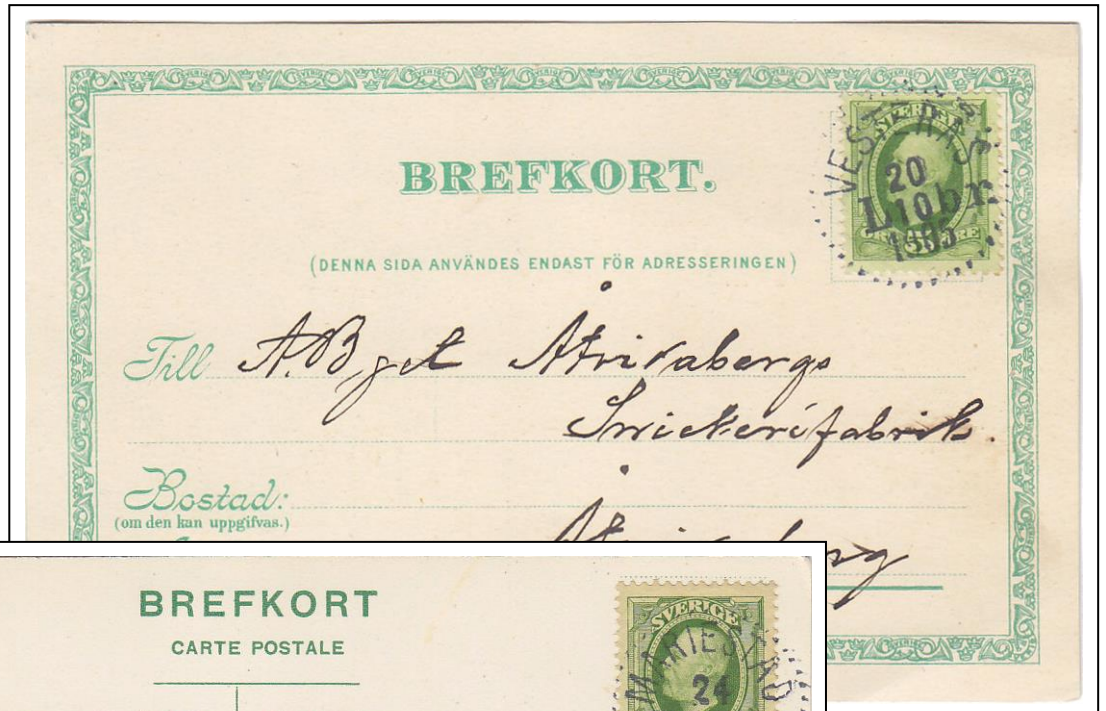 BREFKORT.
SVERIGE
VESTERÅS
20
10
1905
(DENNA SIDA ANVÄNDES ENDAST FÖR ADRESSERINGEN)
Till A.Bget Åtvidabergs
Snickerifabrik.
Bostad:
(om den kan uppgifvas.)
BREFKORT
CARTE POSTALE
SVERIGE
MARIESTAD
24